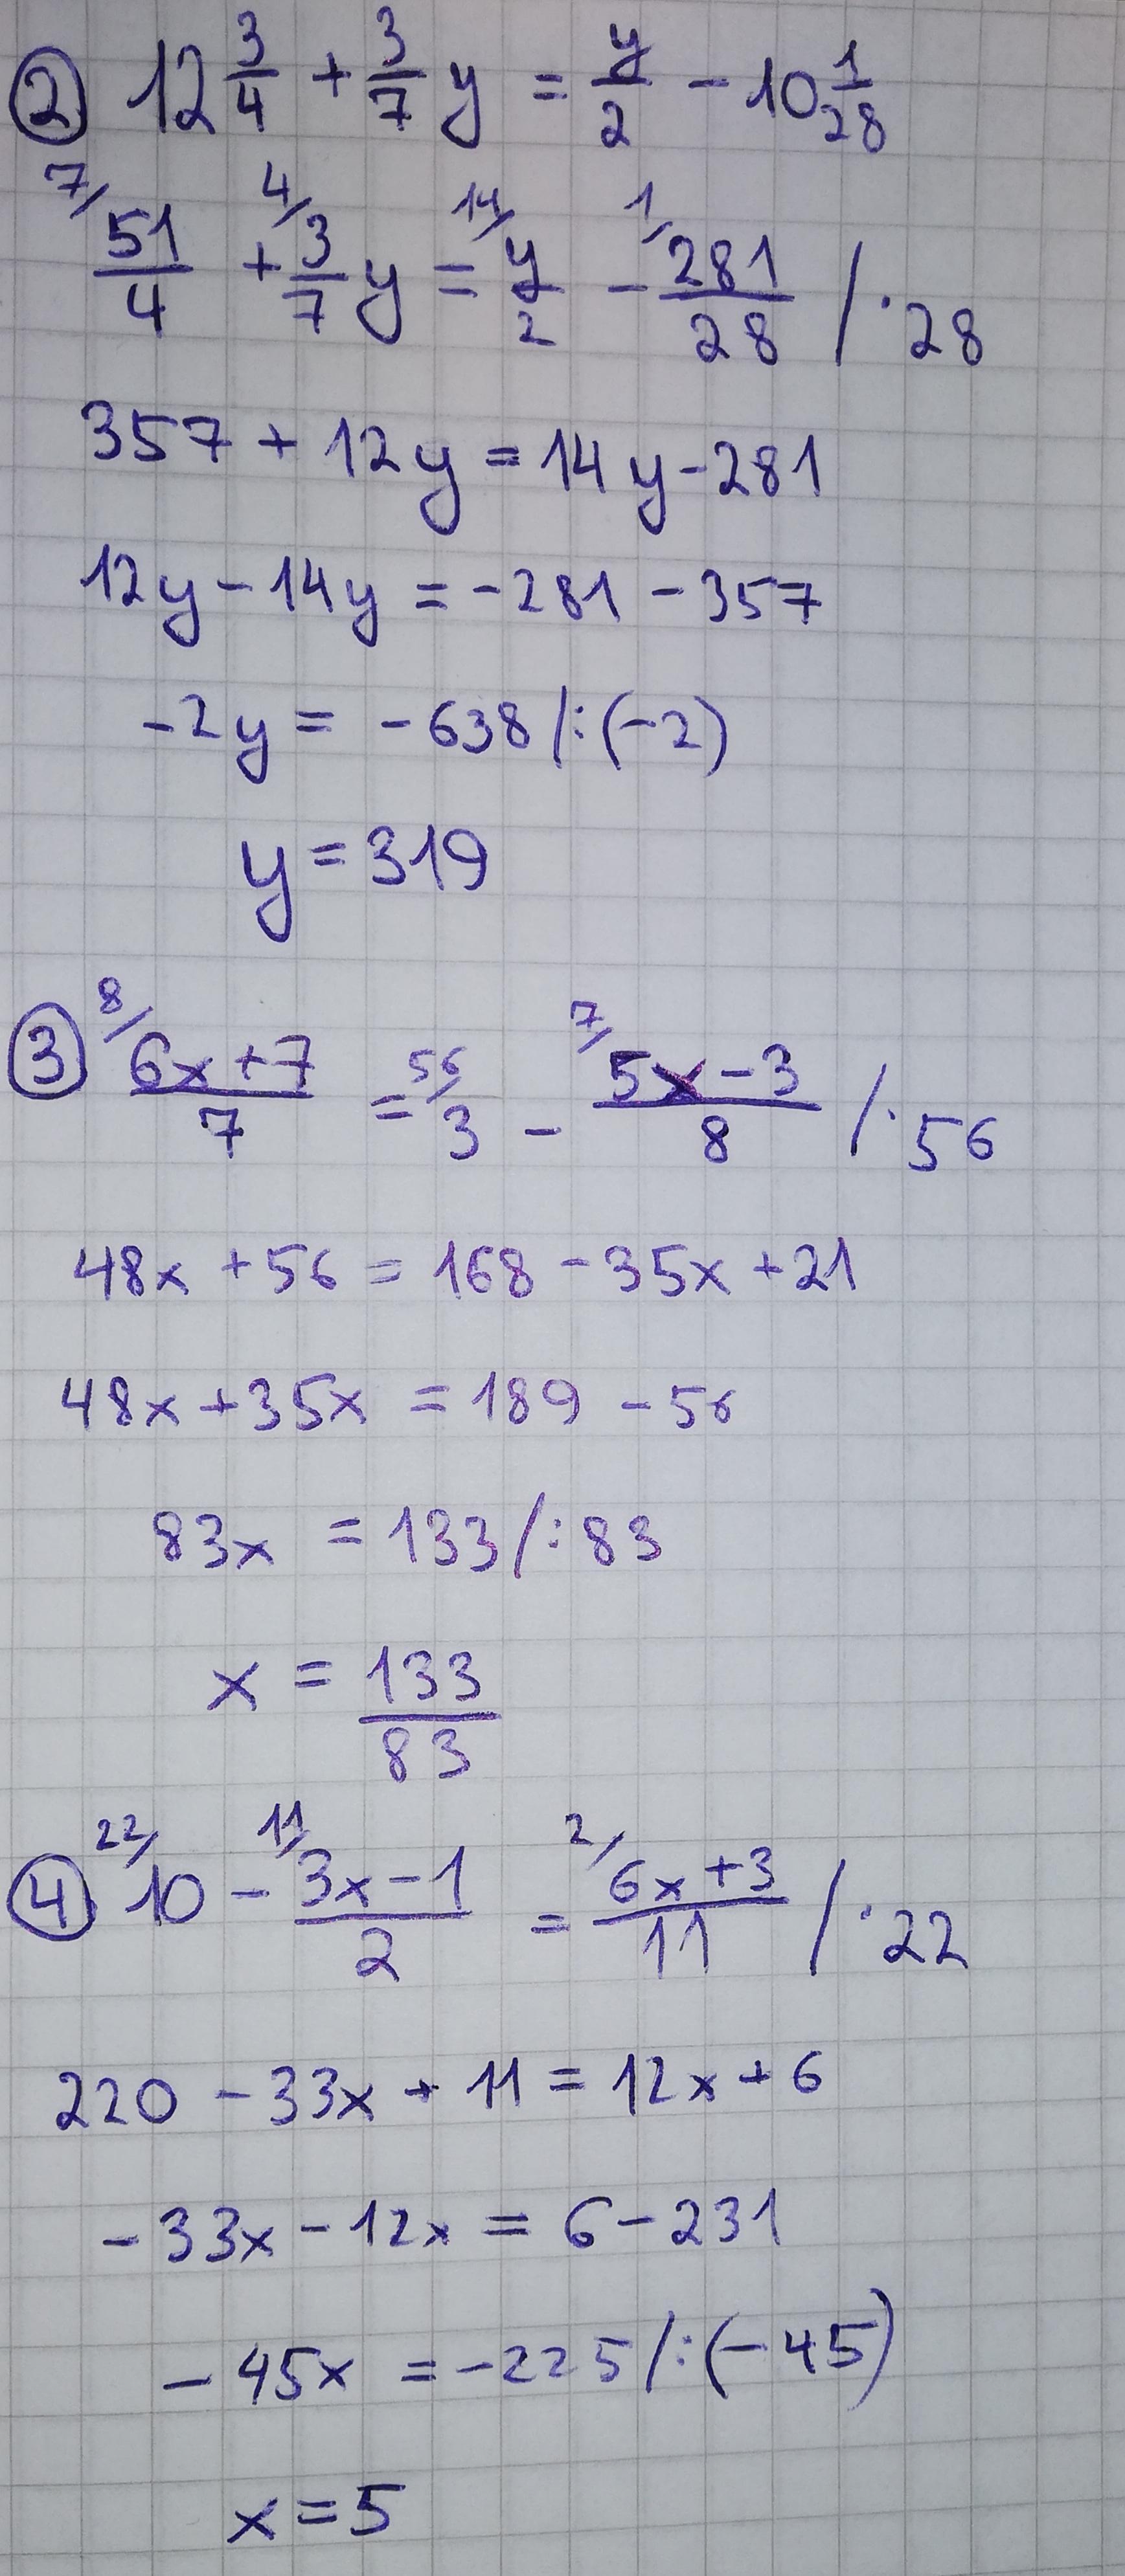 ② 12 3/4 + 3/7 y = y/2 - 10 1/28
7/ 51/4 + 4/ 3/7 y = 14/ y/2 - 1/ 281/28 / ·28
357 + 12y = 14y - 281
12y - 14y = -281 - 357
-2y = -638 /:(-2)
y = 319
③ 8/ (6x+7)/7 = 56/ 3 - 7/ (5x-3)/8 / ·56
48x + 56 = 168 - 35x + 21
48x + 35x = 189 - 56
83x = 133 /:83
x = 133/83
④ 22/ 10 - 11/ (3x-1)/2 = 2/ (6x+3)/11 / ·22
220 - 33x + 11 = 12x + 6
-33x - 12x = 6 - 231
-45x = -225 /:(-45)
x = 5